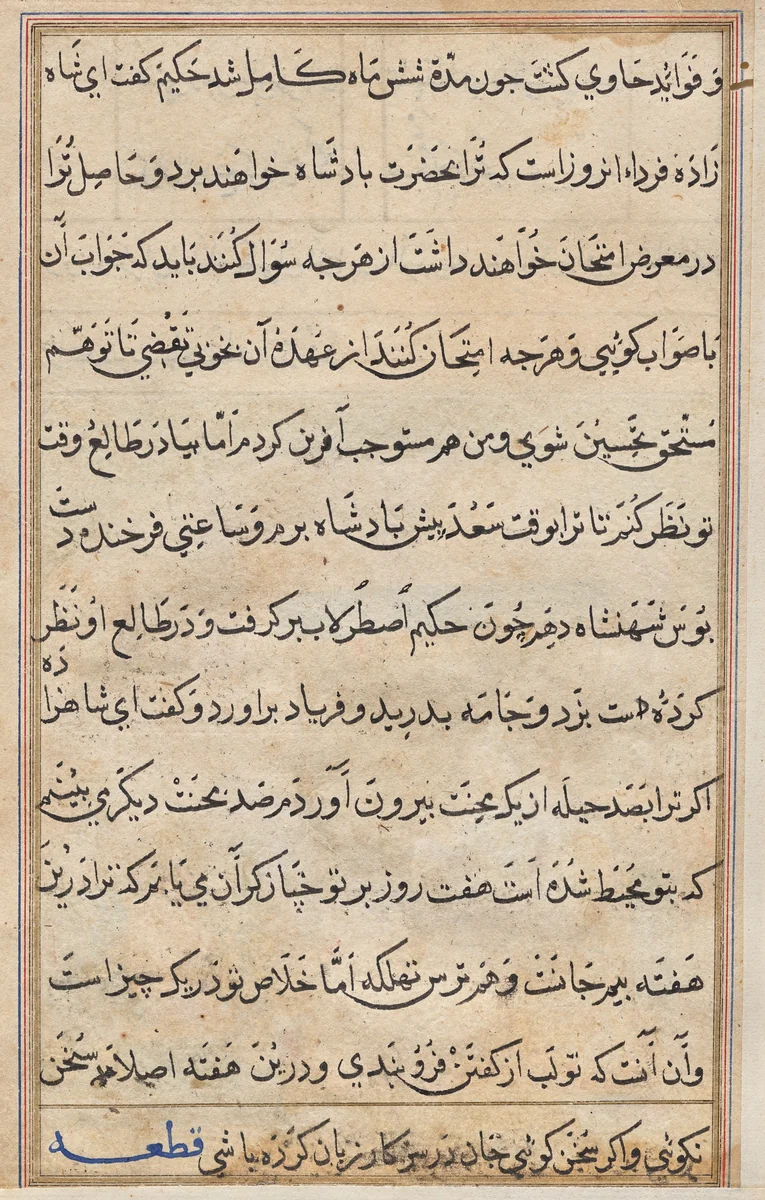 وَ فَوَائِد حَاوي كشت جون مدّة شش مَاه كَامِل شد حَكيم كفت اي شَاه
زَادَه فرداء انروز است كه تُرَا بحَضرَت بادشَاه خواهند برد وَ حَاصِل تُرَا
در معرض امتحَانَ خُوَاهَند داشَتَ از هَر جه سؤال كُنَند بَايد كه جَوَابَ آن
بَا صَوَاب كوَئِيي وَ هَر جه امتِحَان كُنَندَ از عَهدَهٔ آن بخوبي تَقَضّي تَا تَو هَم
مُستحق تحسِينَ شوَي و من هم مستوجب آفرين كردم اَمّا بيَا دَر طَالِع وقت
تو نَظَر كُنَم تا ترا بوقت سَعُدَ بِيش بَادشَاه برم وَ سَا عتِي فرخنده دست
بوَسَ شَهَنشاه دهم چُونَ حكيم اُصطُرلاب بر كرفت وَ دَر طَالِع اوُ نَظَر
كردَهُ دست بزَد وَ جَامَه بدرِيد و فرياد براورد وَ كفت اي شاهزادَه
اكر ترا بصَد حيلَه از يك محِنَت بيرونَ آوَردم صَد محنَتْ ديكَري مي بيَنَم
كه بتو محُيط شدَه است هفت روز بر تو خَپَاز كرآن مي يَابَم كه ترا دَرينَ
هَفتَه بيم جَانَتْ وَ هَم ترس تهلكه اَمَّا خَلَاص تو دَر يك چيز است
وآن آنَت كه تو لَب از كفتَنْ فَرُو بَندي و در ينَ هَفتَه اصلا سُخَن
نكوئي و اكر سُخَن كوَئيي جَان دَر سرَ كار زبان كردَه باشي قطعه